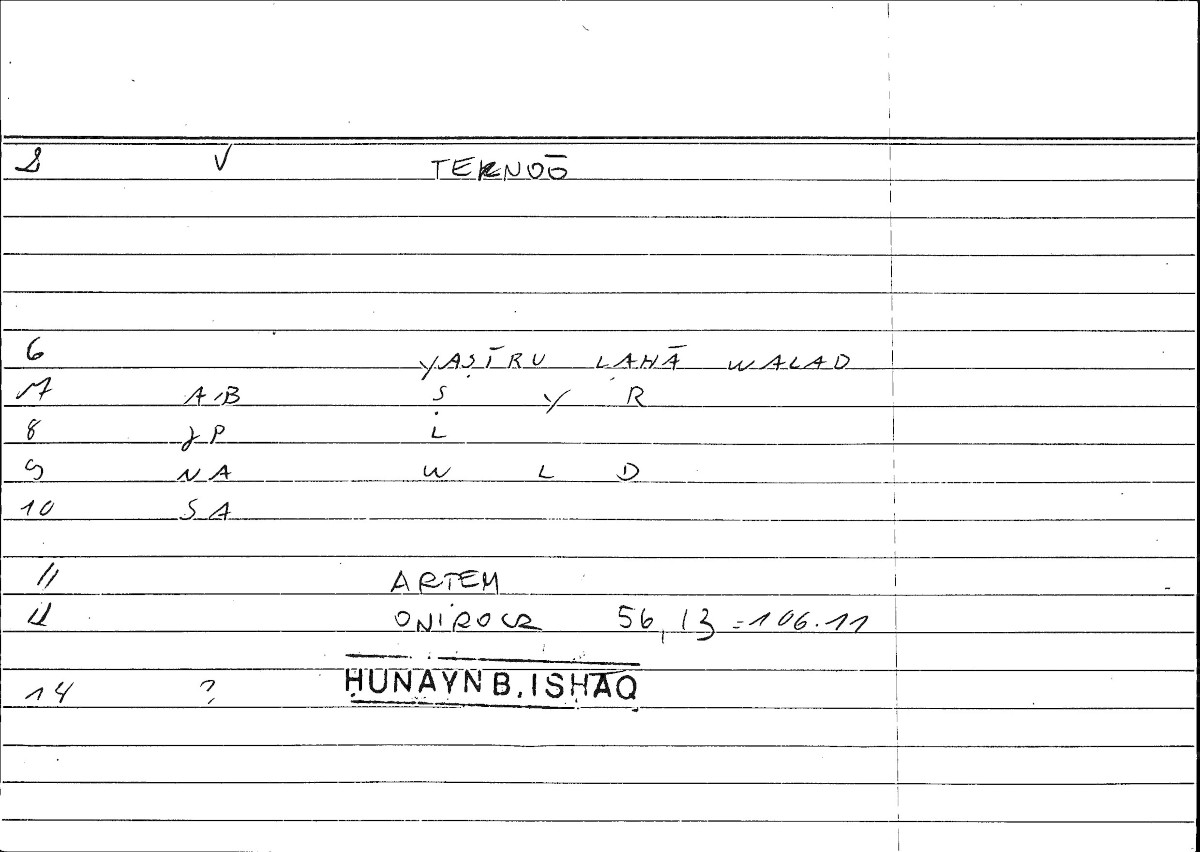 2 V TEKNOŌ
6 YAṢĪRU LAHĀ WALAD
7 A,B Ṣ Y R
8 JP L
9 NA W L D
10 SA
11 ARTEM
12 ONIROCR 56,13 = 106.11
14 ? ḤUNAYN B. ISḤĀQ